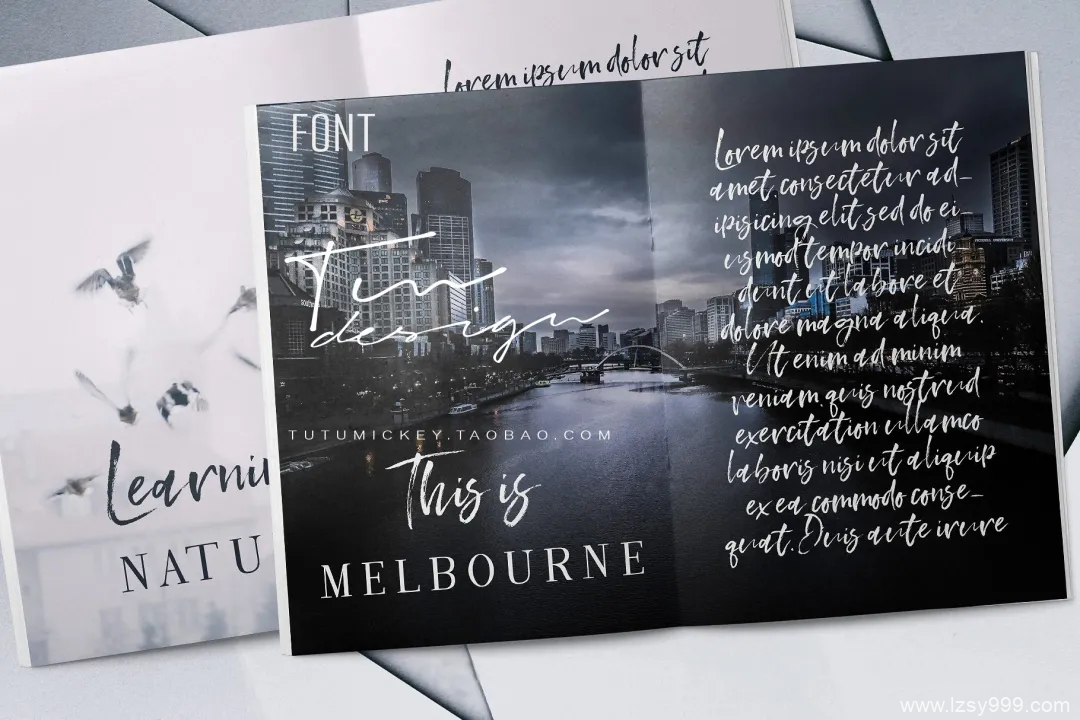 Lorem ipsum dolor sit
Learnin
NATU
FONT
Tutu
design
TUTUMICKEY.TAOBAO.COM
This is
MELBOURNE
Lorem ipsum dolor sit
amet consectetur ad-
ipisicing elit sed do ei
usmod tempor incidi-
dunt ut labore et
dolore magna aliqua.
Ut enim ad minim
veniam quis nostrud
exercitation ullamco
laboris nisi ut aliquip
ex ea commodo conse-
quat. Duis aute irure
www.lzsy999.com